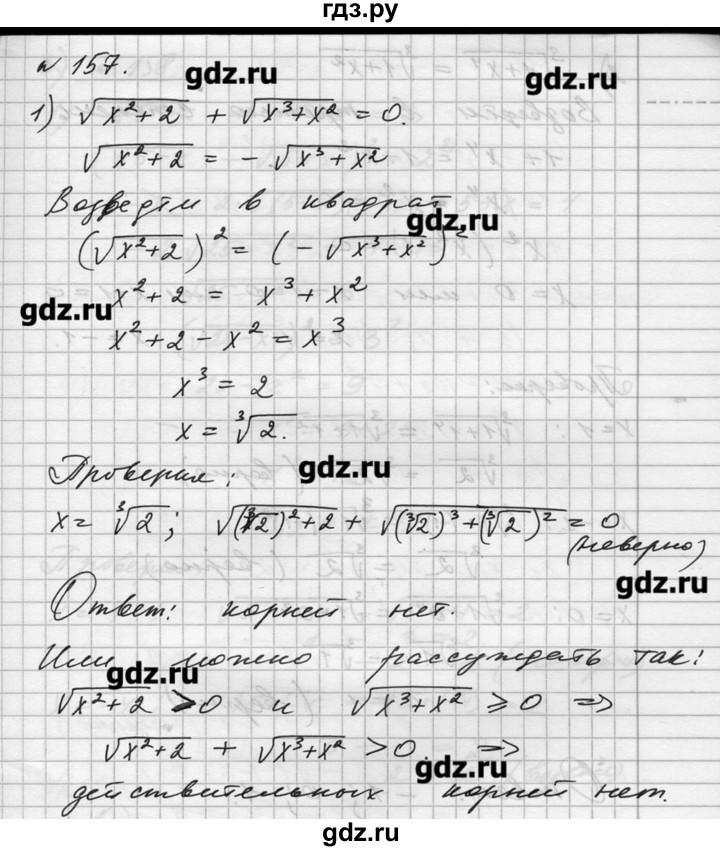 гдз.ру
№ 157.
gdz.ru gdz.ru
1) √(x²+2) + √(x³+x²) = 0.
√(x²+2) = - √(x³+x²)
Возведём в квадрат
gdz.ru
(√(x²+2))² = (- √(x³+x²))²
x²+2 = x³+x²
gdz.ru
x²+2-x² = x³
x³ = 2
x = ∛2.
Проверим:
gdz.ru
x = ∛2; √((∛2)²+2) + √((∛2)³+(∛2)²) = 0
(неверно)
gdz.ru
Ответ: корней нет.
Или можно рассуждать так:
gdz.ru
√(x²+2) > 0 и √(x³+x²) ⩾ 0 =>
√(x²+2) + √(x³+x²) > 0. =>
gdz.ru
действительных корней нет.
gdz.ru